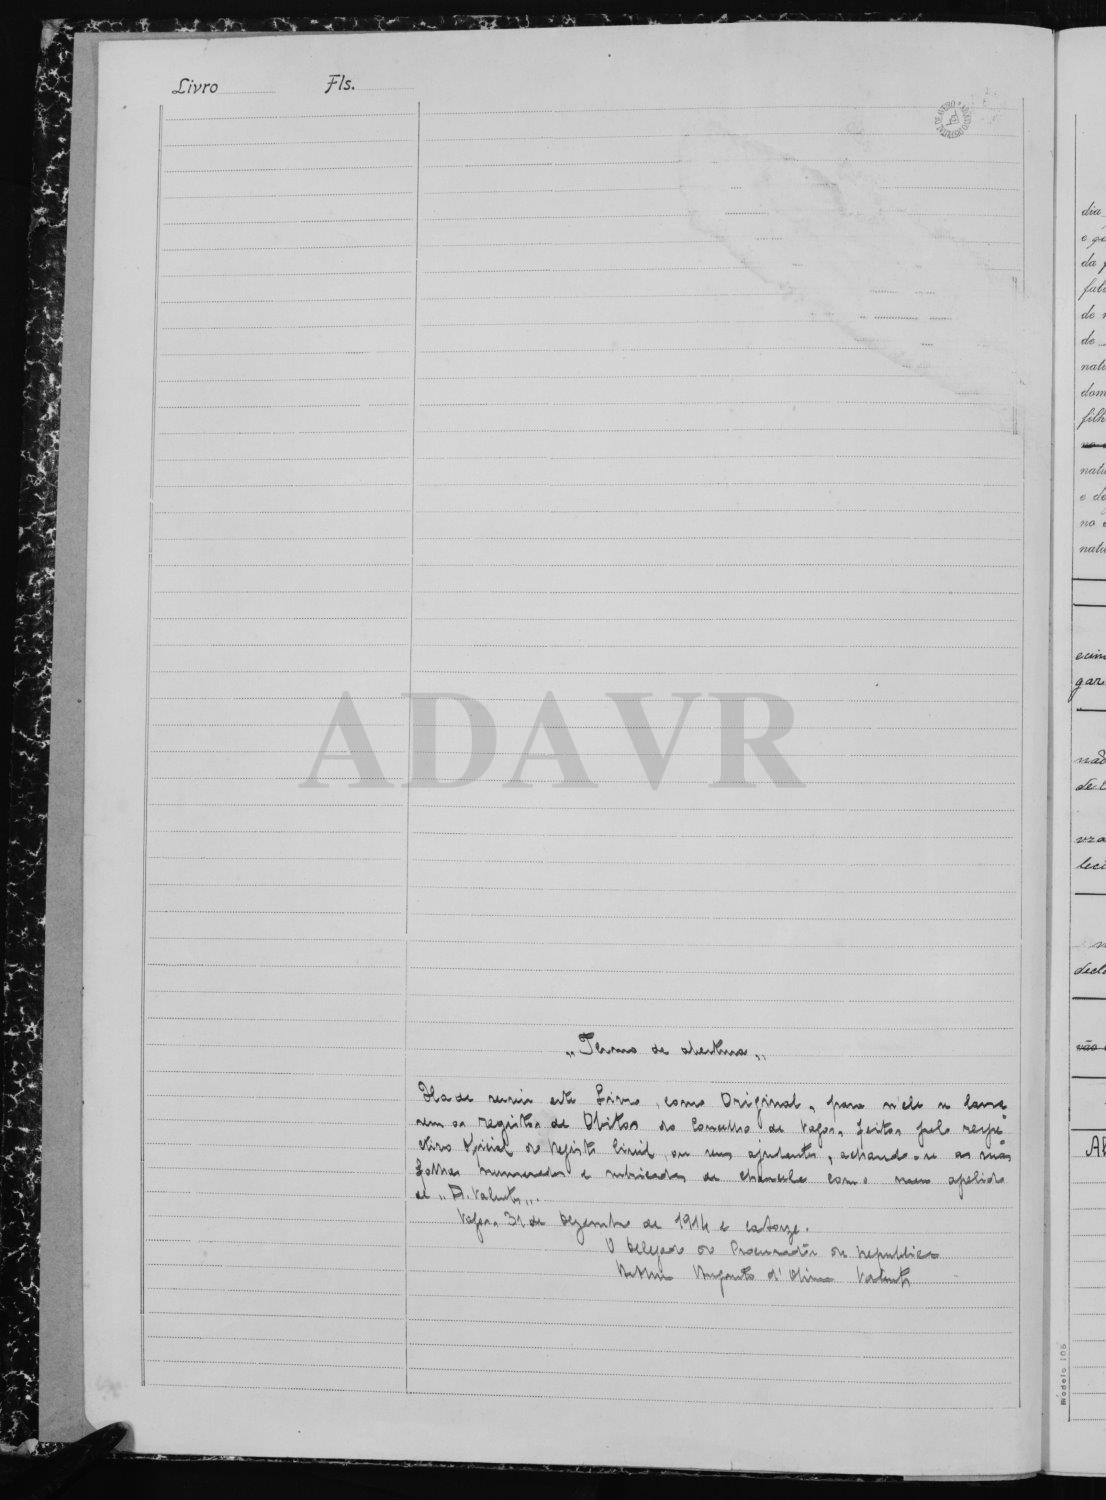 Livro Fls.
ADAVR
„Termo de abertura„
Ha de servir este Livro, como Original, para n'ele se lavra-
rem os registos de Obitos do Concelho de Vagos, feitos pelo respe-
ctivo Oficial do Registo Civil, ou seus ajudantes, achando-se as suas
folhas numeradas e rubricadas de chancela com o meu apelido
de „A. Valente„.
Vagos, 31 de Dezembro de 1914 e catorze.
O Delegado do Procurador da Republica
Augusto d'Oliveira Valente
dia
e
da
de
de
natu
dom
filh
natu
e de
no
natu
gar
não
decl
não
Modelo 106